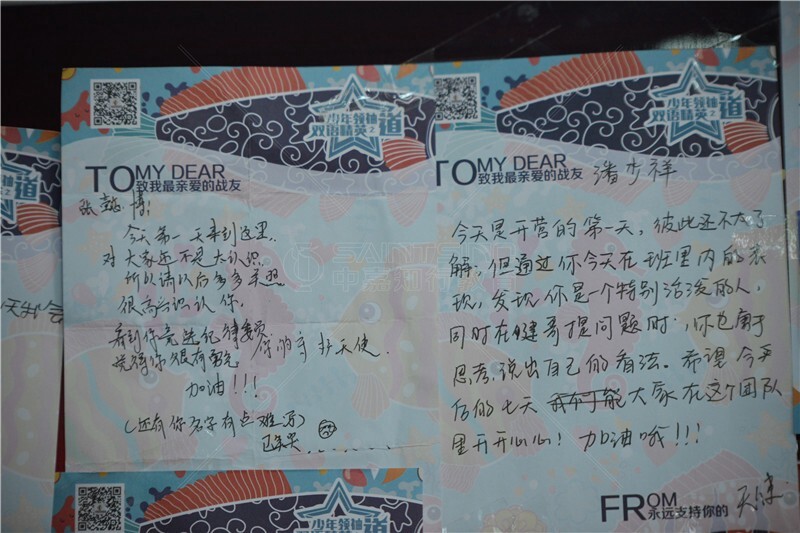 少年领袖
双语精英之道
TO MY DEAR
致我最亲爱的战友
张懿博:
今天第一天来到这里.
对大家还不是太认识.
所以请以后多多关照
很高兴认识你.
看到你竞选纪律委员
觉得你很有勇气
你的守护天使.
加油!!!
(还有你名字有点难写)
少年领袖
双语精英之道
TO MY DEAR
致我最亲爱的战友
潘少祥
今天是开营的第一天,彼此还不太了
解,但通过你今天在班里内的表
现,发现你是一个特别活泼的人,
同时在健哥提问题时,你也勇于
思考,说出自己的看法。希望今天
后的七天大家在这个团队
里开开心心!加油哦!!!
FROM
永远支持你的
少年领袖
少年领袖